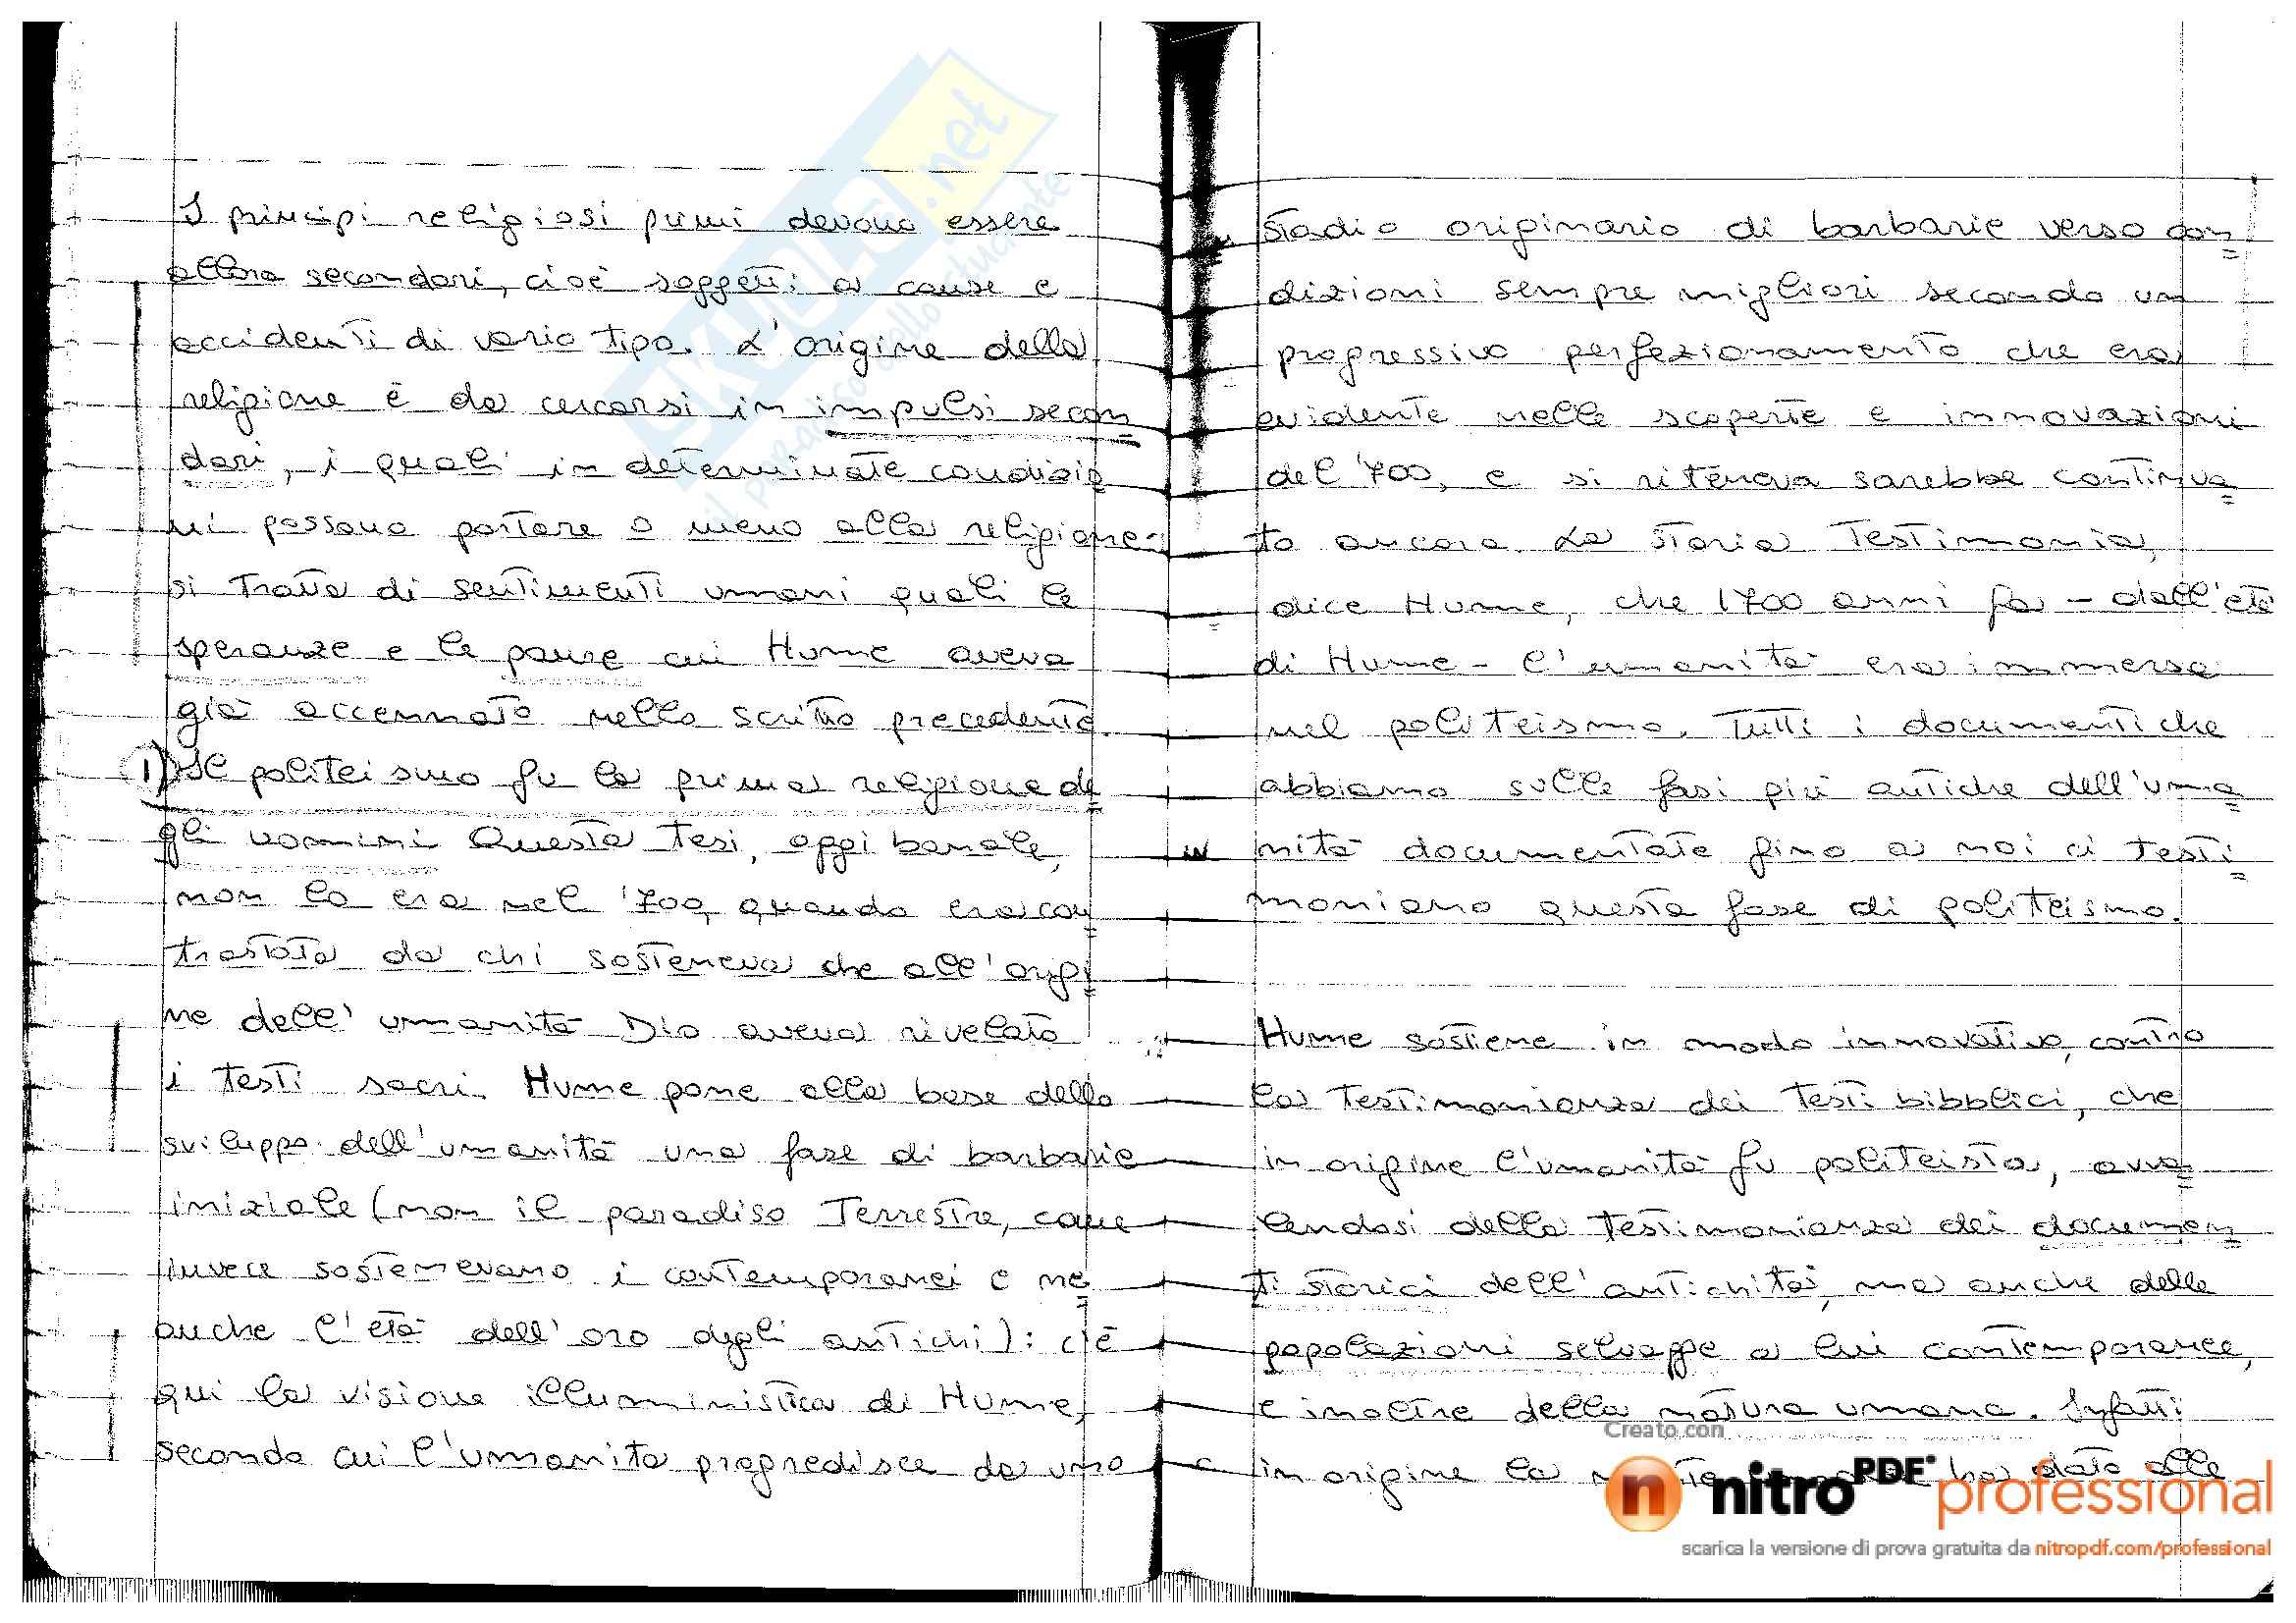 I principi religiosi primi devono essere
allora secondari, cioè soggetti a cause e
accidenti di vario tipo. L'origine della
religione è da cercarsi in impulsi secon
dari, i quali in determinate condizio
ni possono portare o meno alla religione:
si tratta di sentimenti umani quali le
speranze e le paure cui Hume aveva
già accennato nello scritto precedente.
1) Il politeismo fu la prima religione de
gli uomini Questa tesi, oggi banale,
non lo era nel '700, quando era con
trastata da chi sosteneva che all'origi
ne dell'umanità Dio aveva rivelato
i testi sacri. Hume pone alla base dello
sviluppo dell'umanità una fase di barbarie
iniziale (non il paradiso Terrestre, come
invece sostenevano i contemporanei e ne
anche l'età dell'oro degli antichi): c'è
qui la visione illuministica di Hume,
secondo cui l'umanità progredisce da uno
stadio originario di barbarie verso con
dizioni sempre migliori secondo un
progressivo perfezionamento che era
evidente nelle scoperte e innovazioni
del '700, e si riteneva sarebbe continua
to ancora. La storia testimonia,
dice Hume, che 1700 anni fa - dall'età
di Hume - l'umanità era immersa
nel politeismo. Tutti i documenti che
abbiamo sulle fasi più antiche dell'uma
nità documentate fino a noi ci testi
moniano questa fase di politeismo.
Hume sostiene in modo innovativo, contro
la testimonianza dei testi bibblici, che
in origine l'umanità fu politeista, avva
lendosi della testimonianza dei documen
ti storici dell'antichità, ma anche delle
popolazioni selvagge a lui contemporanee,
e inoltre della natura umana. Infatti
in origine la ha dato alle
Creato con
nitro PDF professional
scarica la versione di prova gratuita da nitropdf.com/professional
SKUOLA.net
il paradiso dello studente